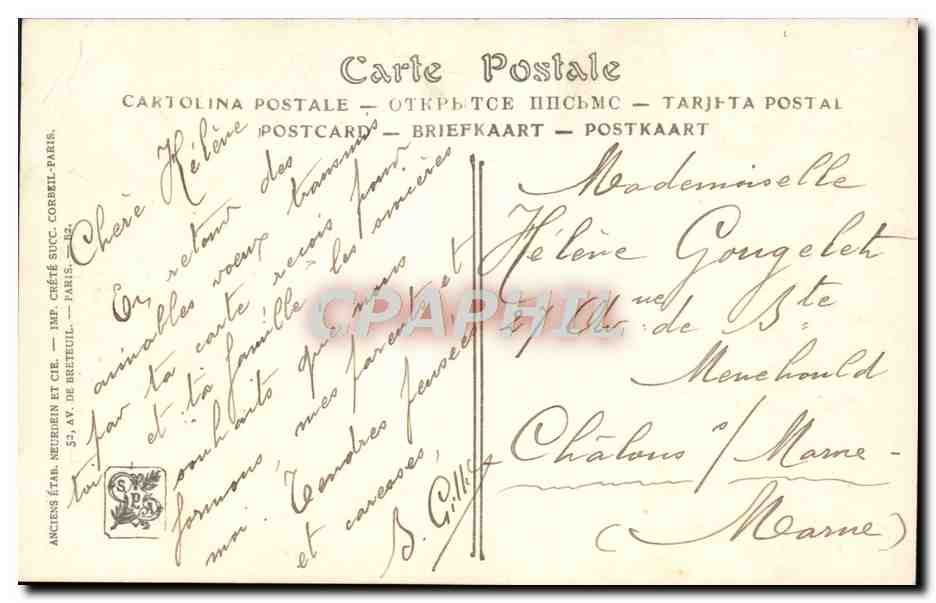 Carte Postale
CARTOLINA POSTALE — ОТКРЫТСЕ ПИСЬМС — TARJETA POSTAL
POSTCARD — BRIEFKAART — POSTKAART
ANCIENS ÉTAB. NEURDEIN ET CIE. — IMP. CRÉTÉ SUCC. CORBEIL-PARIS.
52, AV. DE BRETEUIL. — PARIS. — 52.
Chère Hélène
En retour des
aimables voeux transmis
par ta carte reçois pour
toi et ta famille les sincères
souhaits que nous
formons, mes parents et
moi. Tendres pensées
et caresses,
B. Gillet
SPA
CPAPHIL
Mademoiselle
Hélène Gougelet
27 Av.ue de Ste
Menehould
Châlons s/ Marne -
(Marne)